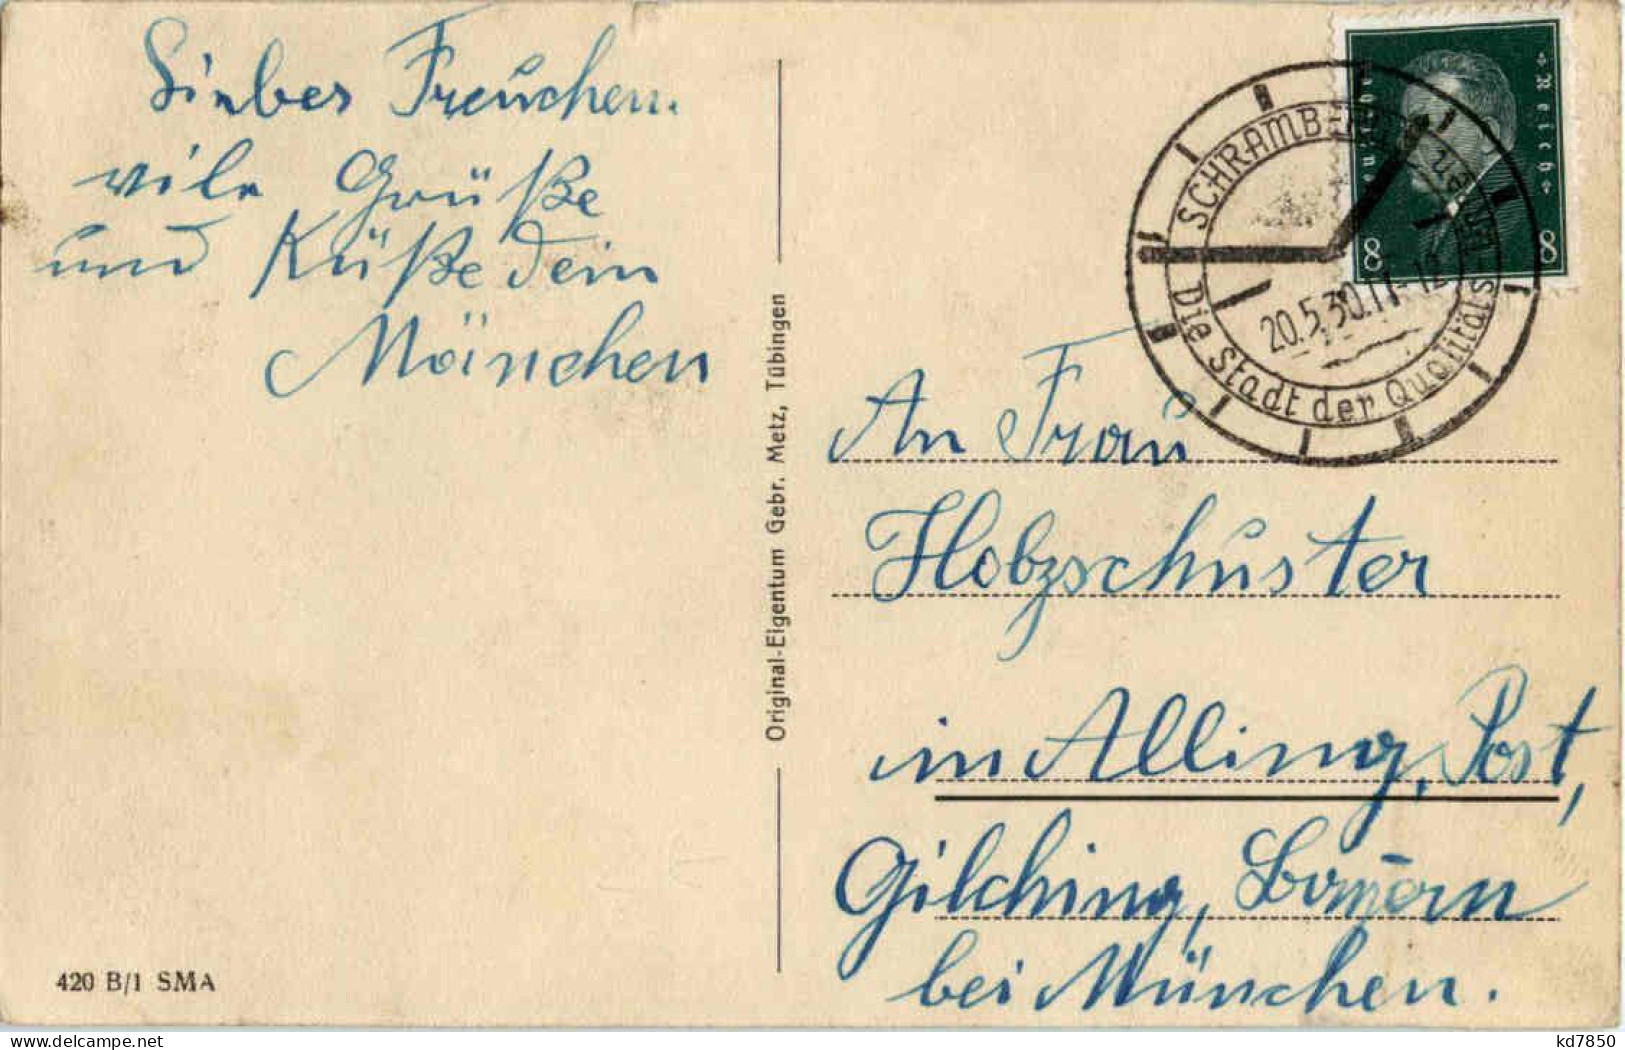 Lieber Freuchen.
viele Grüße
und Küße dein
Mäinchen
Original-Eigentum Gebr. Metz, Tübingen
420 B/1 SMA
Deutsches Reich
8 8
SCHRAMBERG
Die Stadt der Qualitäts-Uhren
20.5.30.11-12
An Frau
Holzschuster
in Alling, Post,
Gilching, Bayern
bei München.
kd7850